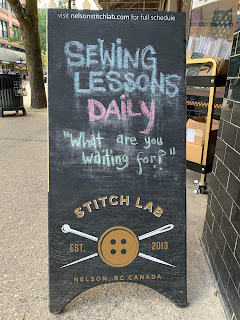 visit nelsonstitchlab.com for full schedule
SEWING
LESSONS
DAILY
"What are you
waiting for?"
STITCH LAB
EST. 2013
NELSON, BC CANADA